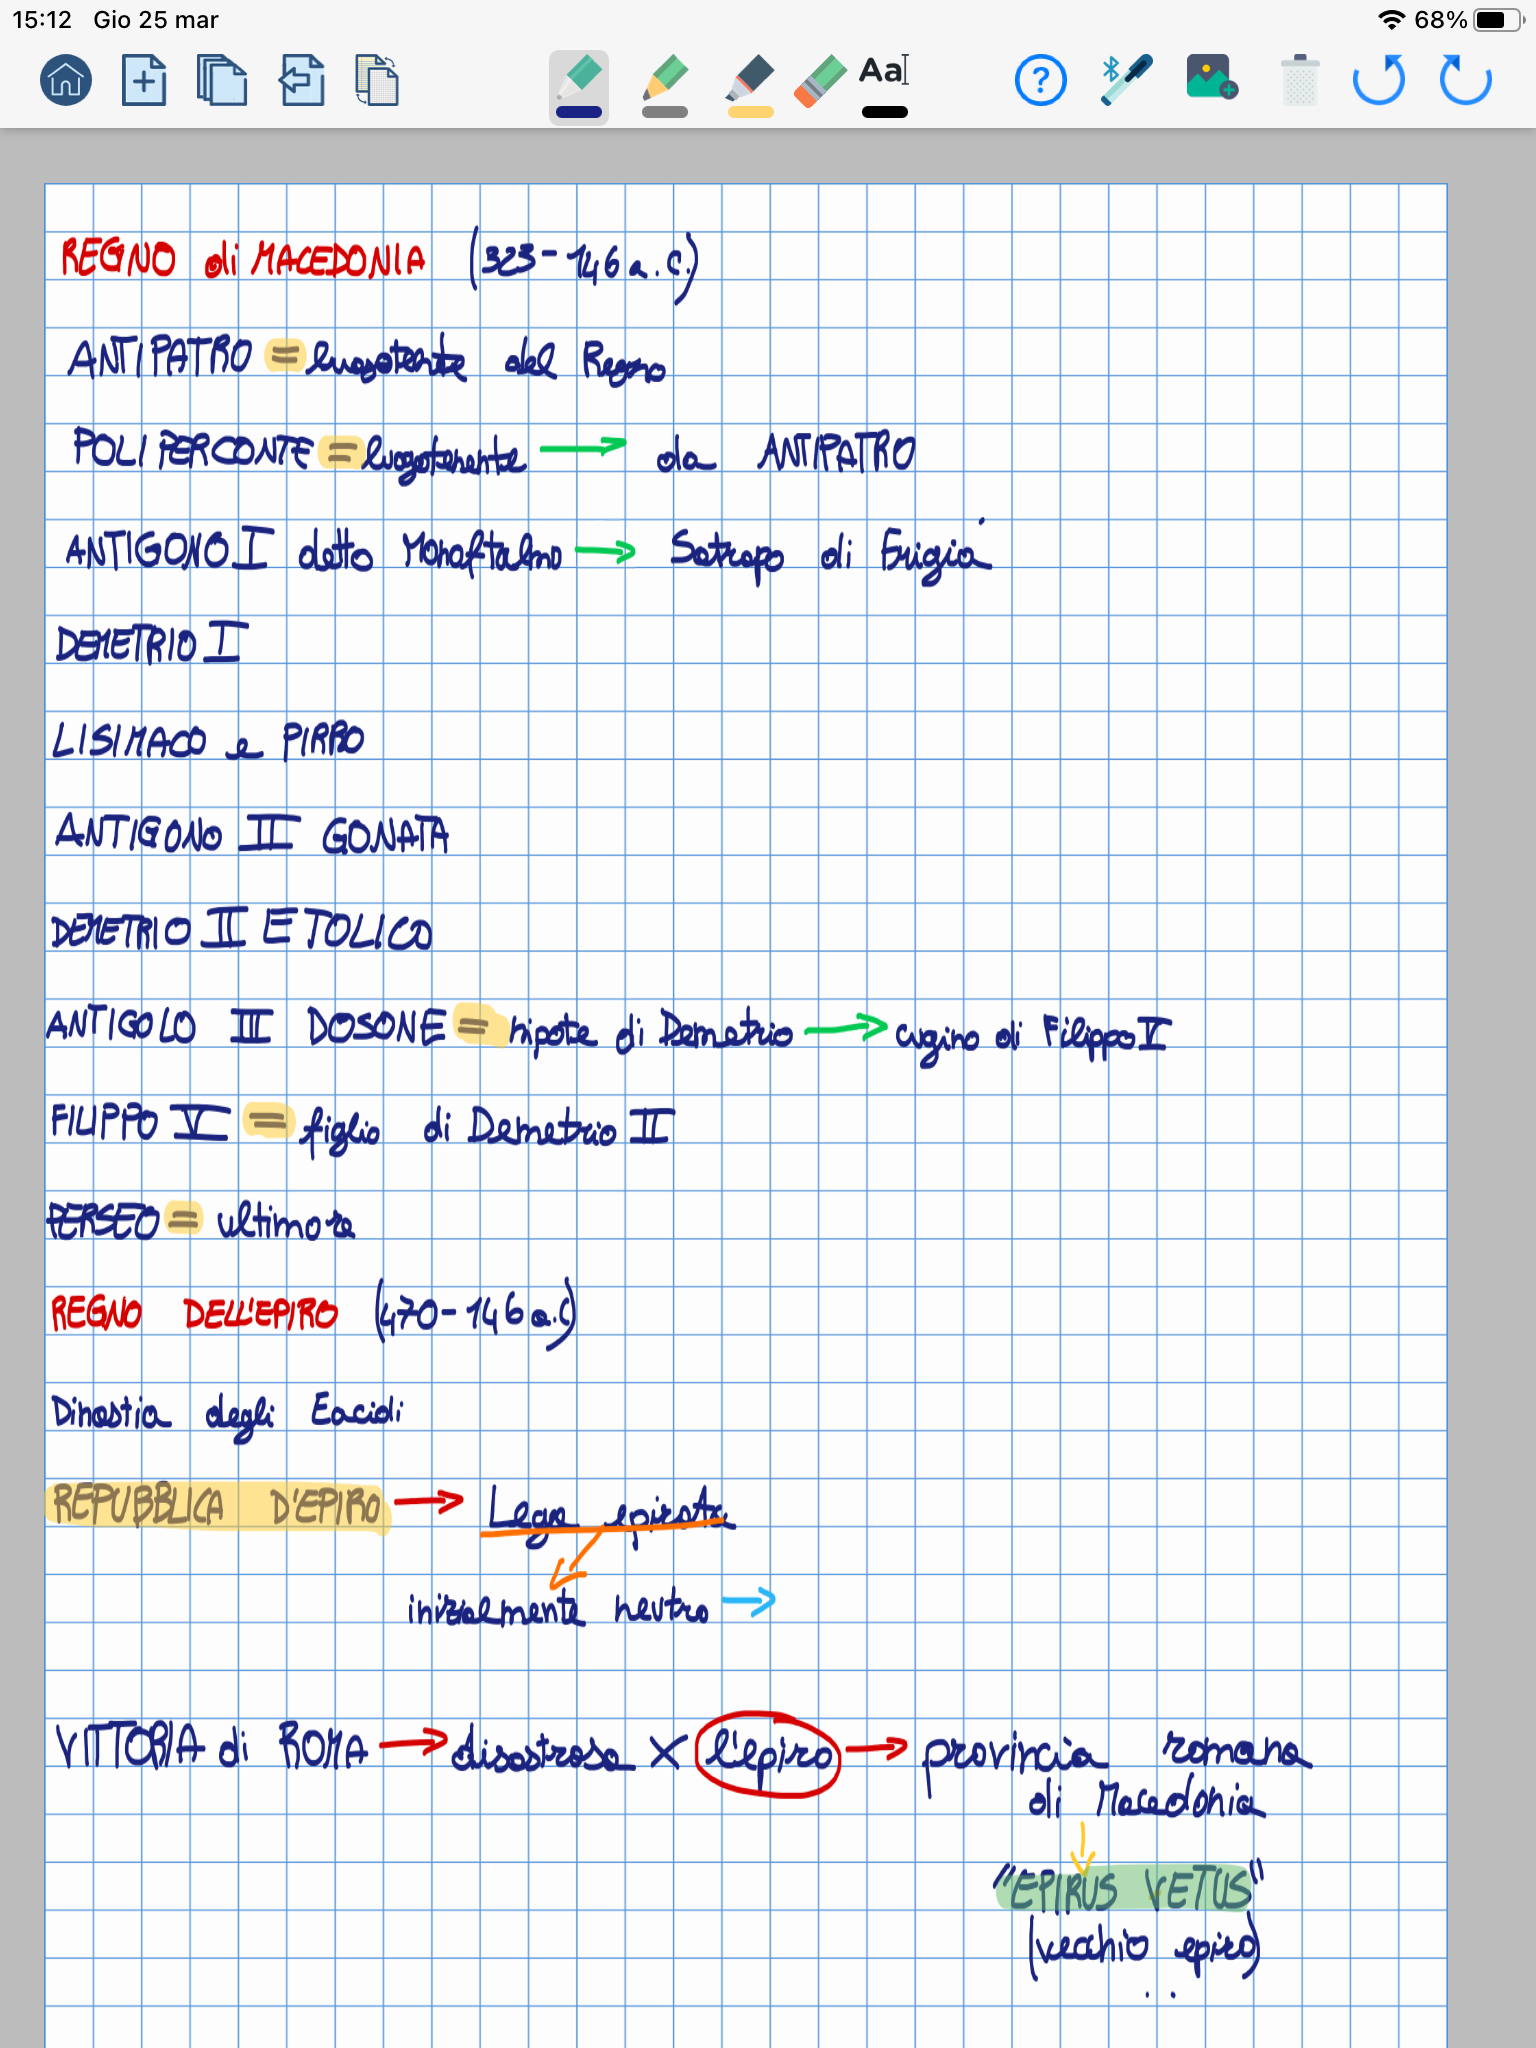 15:12 Gio 25 mar 68%
Aa
REGNO di MACEDONIA (323-146 a.C.)
ANTIPATRO = luogotente del Regno
POLIPERCONTE = luogotenente → da ANTIPATRO
ANTIGONO I detto Monoftalmo → Satrapo di Frigia
DEMETRIO I
LISIMACO e PIRRO
ANTIGONO II GONATA
DEMETRIO II ETOLICO
ANTIGOLO III DOSONE = nipote di Demetrio → cugino di Filippo V
FILIPPO V = figlio di Demetrio II
PERSEO = ultimo re
REGNO DELL'EPIRO (470-146 a.C)
Dinastia degli Eacidi
REPUBBLICA D'EPIRO → Lega epirota
inizialmente neutro →
VITTORIA di ROMA → disastrosa X l'epiro → provincia romana
di Macedonia
"EPIRUS VETUS"
(vecchio epiro)